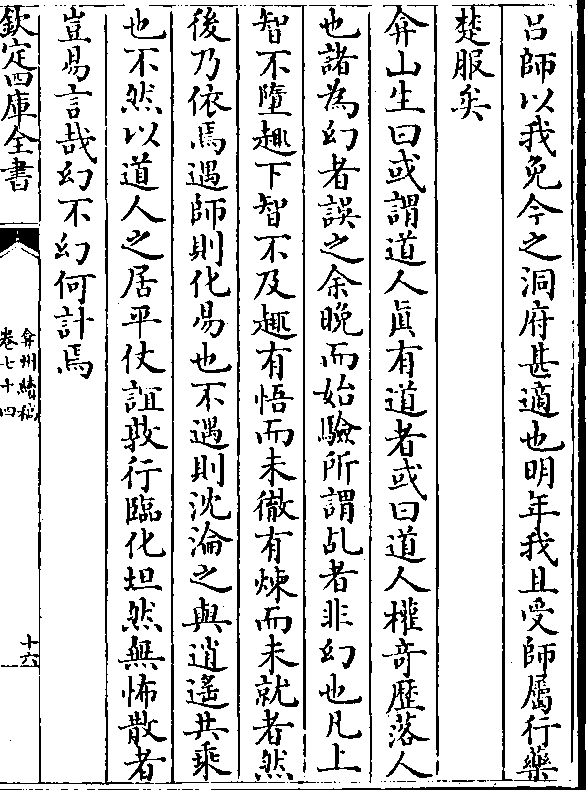 呂師以我免今之洞府甚適也明年我且受師屬行藥
楚服矣
弇山生曰或謂道人眞有道者或曰道人權竒歴落人
也諸為幻者誤之余晚而始驗所謂乩者非幻也凡上
智不墮趣下智不及趣有悟而未徹有煉而未就者然
後乃依焉遇師則化易也不遇則沈淪之與逍遙共乘
也不然以道人之居平仗誼敦行臨化坦然無怖散者
豈易言哉幻不幻何計焉
欽定四庫全書
弇州續稿
卷七十四
十六